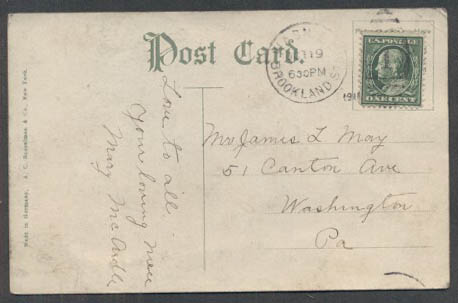 Post Card.
Love to all.
Your loving niece
Mary McArdle
Mr James L May
51 Canton Ave
Washington
Pa
19
630PM
BROOKLAND
191
U.S. POSTAGE
ONE CENT
Made in Germany. A. C. Bosselman & Co., New York.